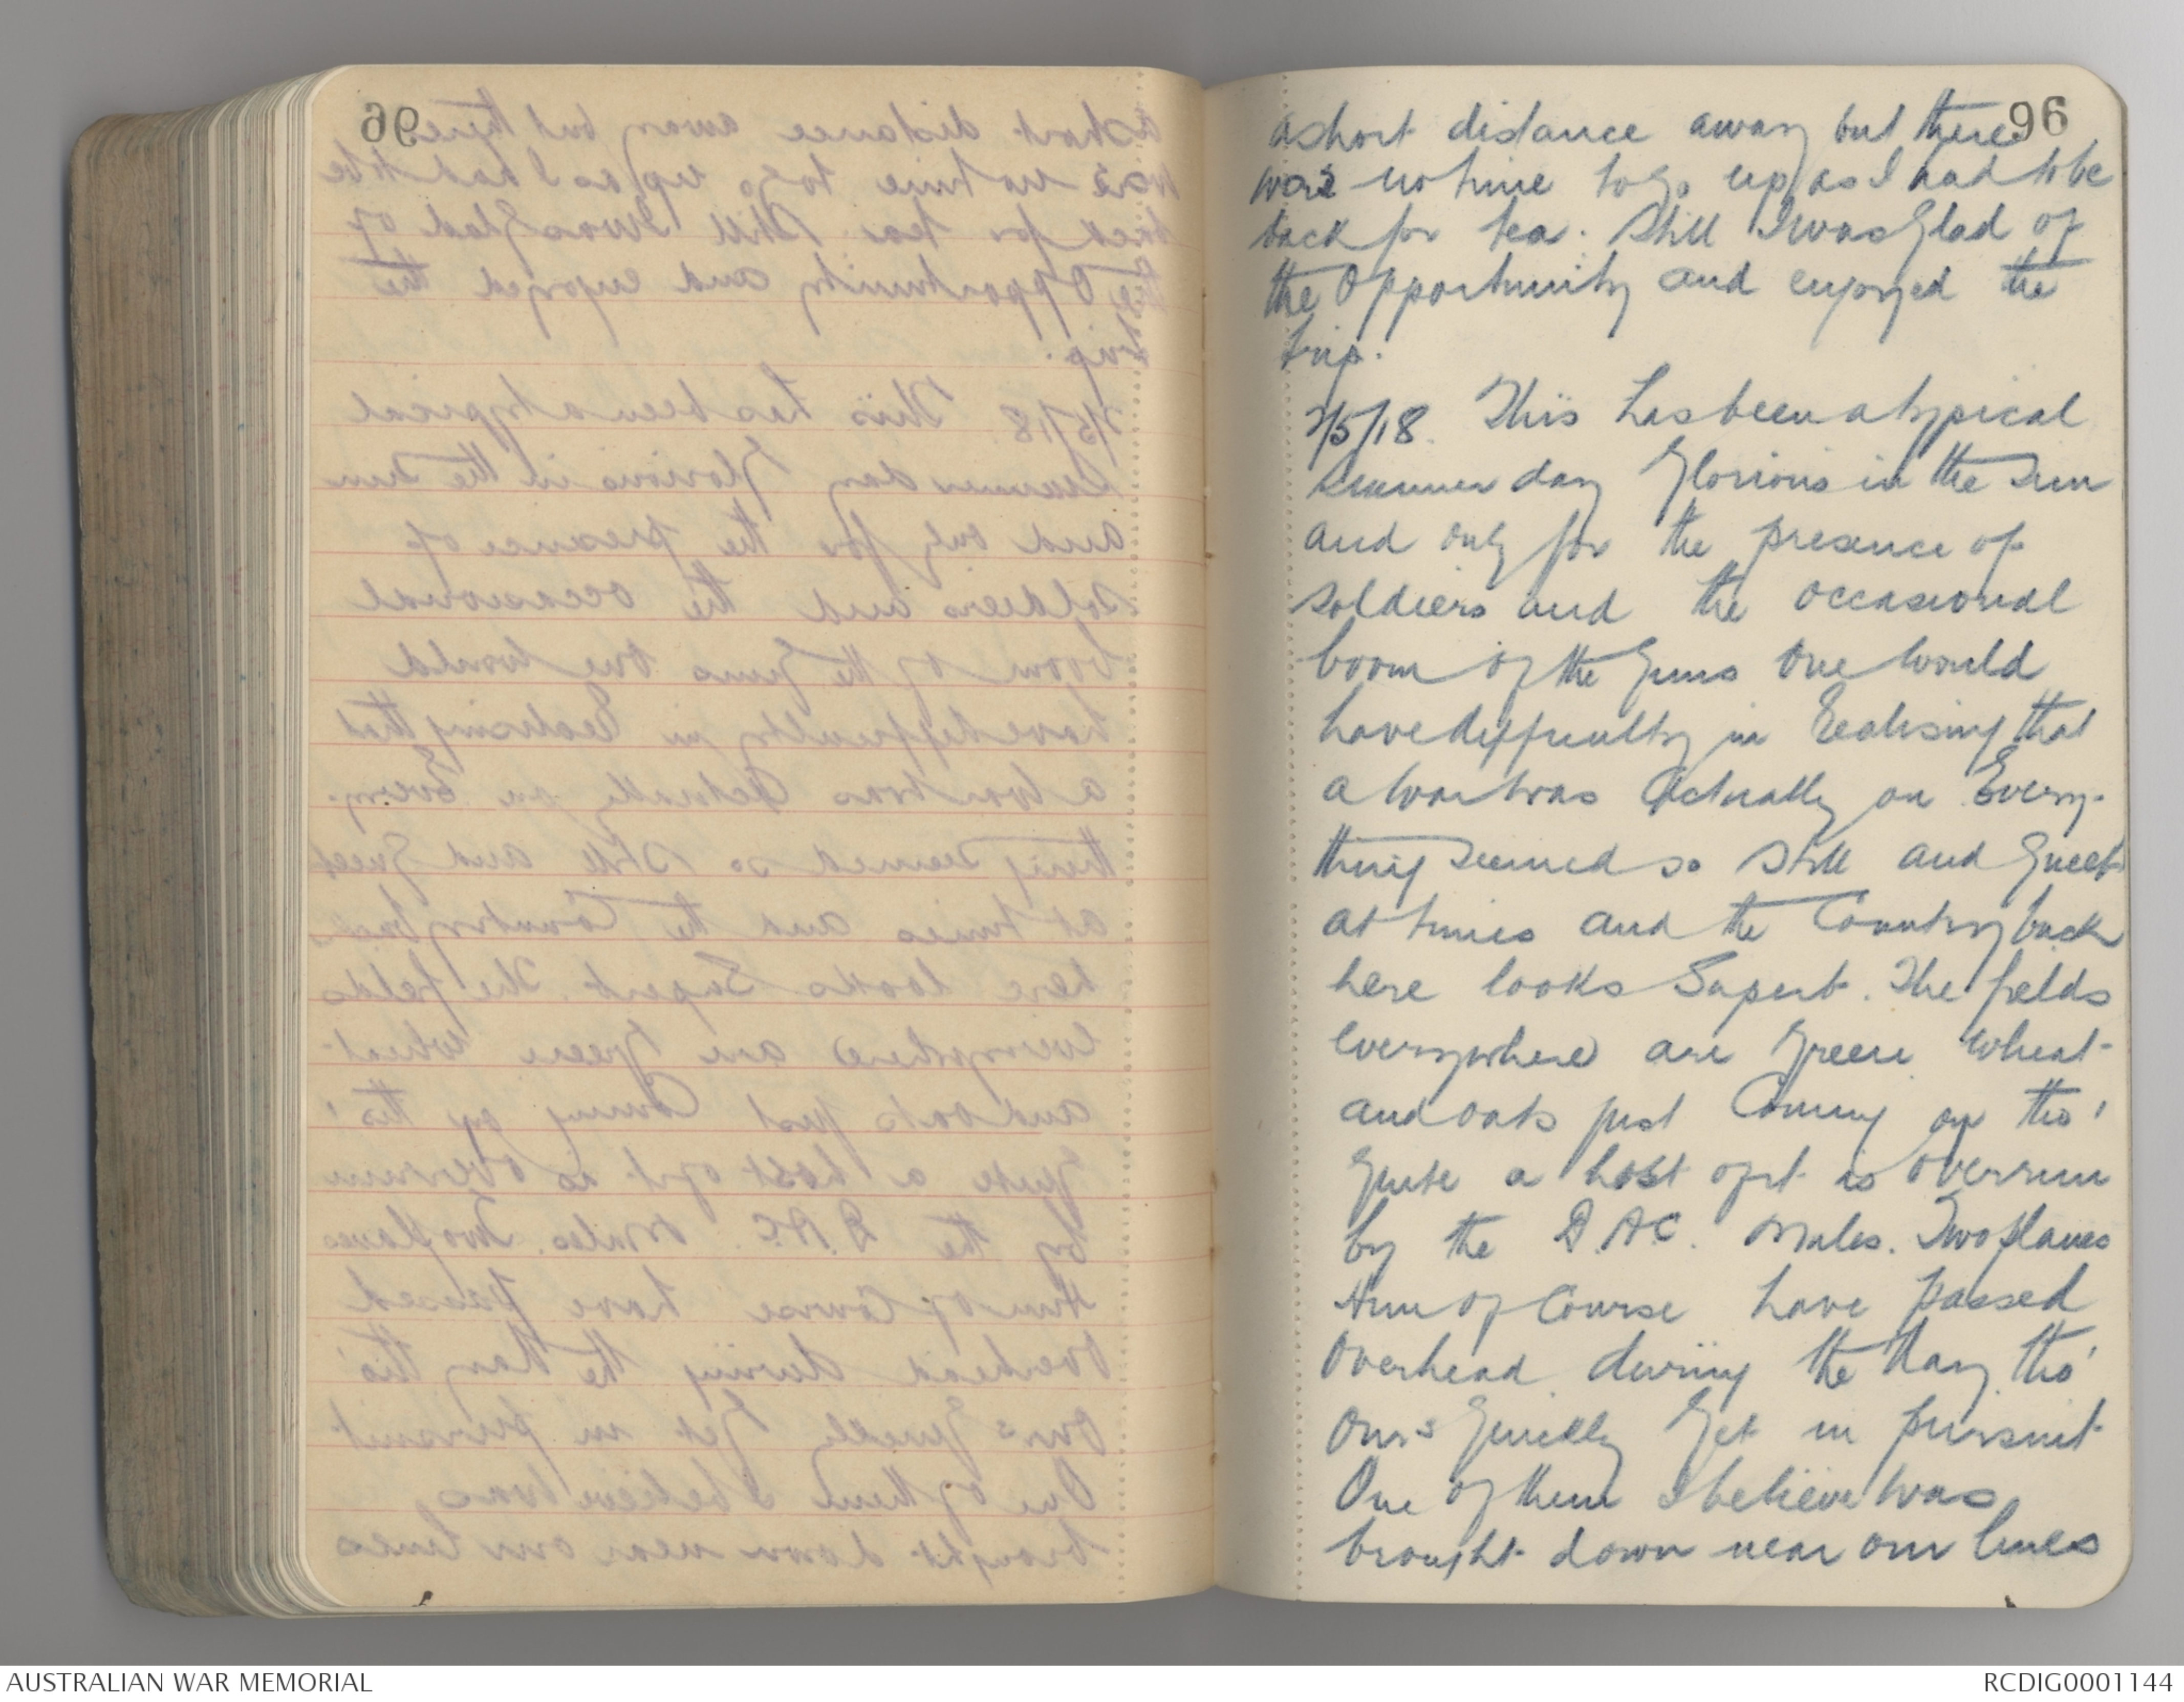 96
a short distance away but there
was no time to go up as I had to be
back for tea. Still I was glad of
the Opportunity and enjoyed the
trip.
2/5/18. This has been a typical
summer day Glorious in the Sun
and only for the presence of
soldiers and the occasional
boom of the Guns One would
have difficulty in Realising that
a war was Actually on Every-
thing seemed so Still and Quiet
at times and the Country back
here looks Superb. The fields
everywhere are Green Wheat
and oats just Coming on tho'
Quite a host of it is overrun
by the D.A.C. Mules. Two planes
Hun of Course have passed
Overhead during the day tho'
Ours Quickly Get in pursuit
One of them I believe was
brought down near our lines
AUSTRALIAN WAR MEMORIAL
RCDIG0001144